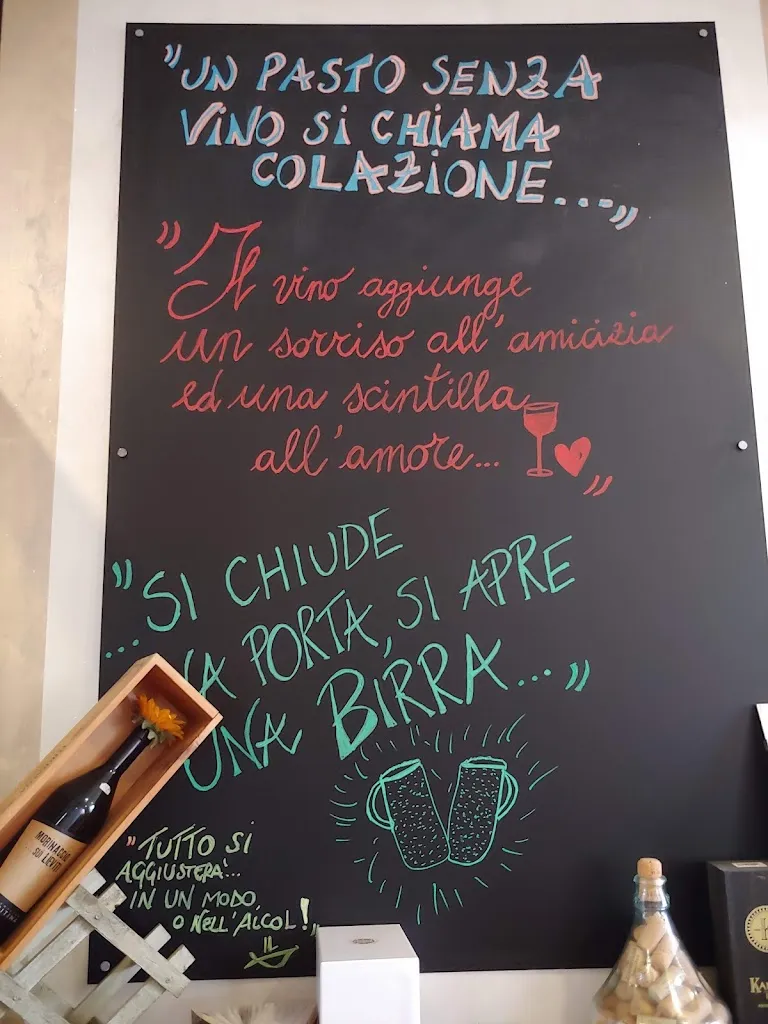 "UN PASTO SENZA
VINO SI CHIAMA
COLAZIONE..."
"Il vino aggiunge
un sorriso all'amicizia
ed una scintilla
all'amore..."
"...SI CHIUDE
PORTA, SI APRE
UNA BIRRA..."
"TUTTO SI
AGGIUSTERÀ...
IN UN MODO,
O NELL'ALCOL!"
MORINACCIO
SUI LIEVITI